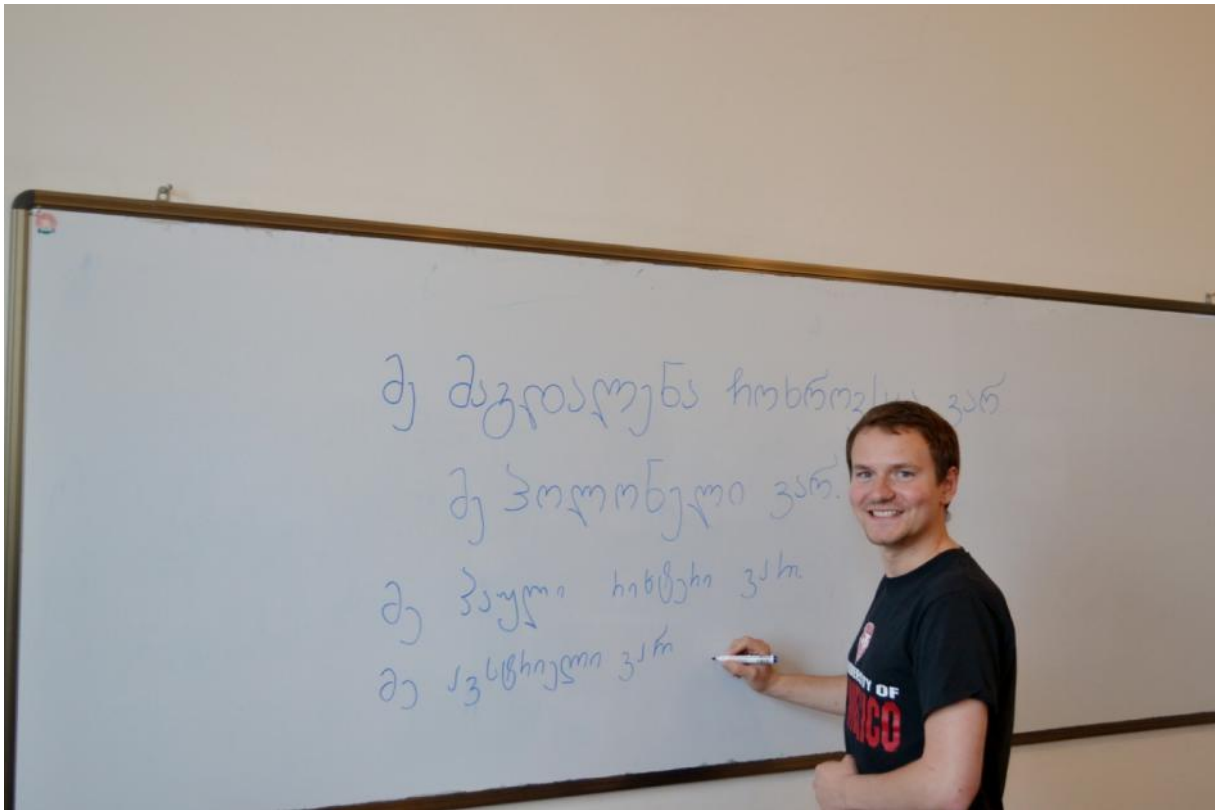 მე მაგდალენა ვარ
მე პოლონელი ვარ.
მე პაული რიხტერი ვარ.
მე ავსტრიელი ვარ
OF